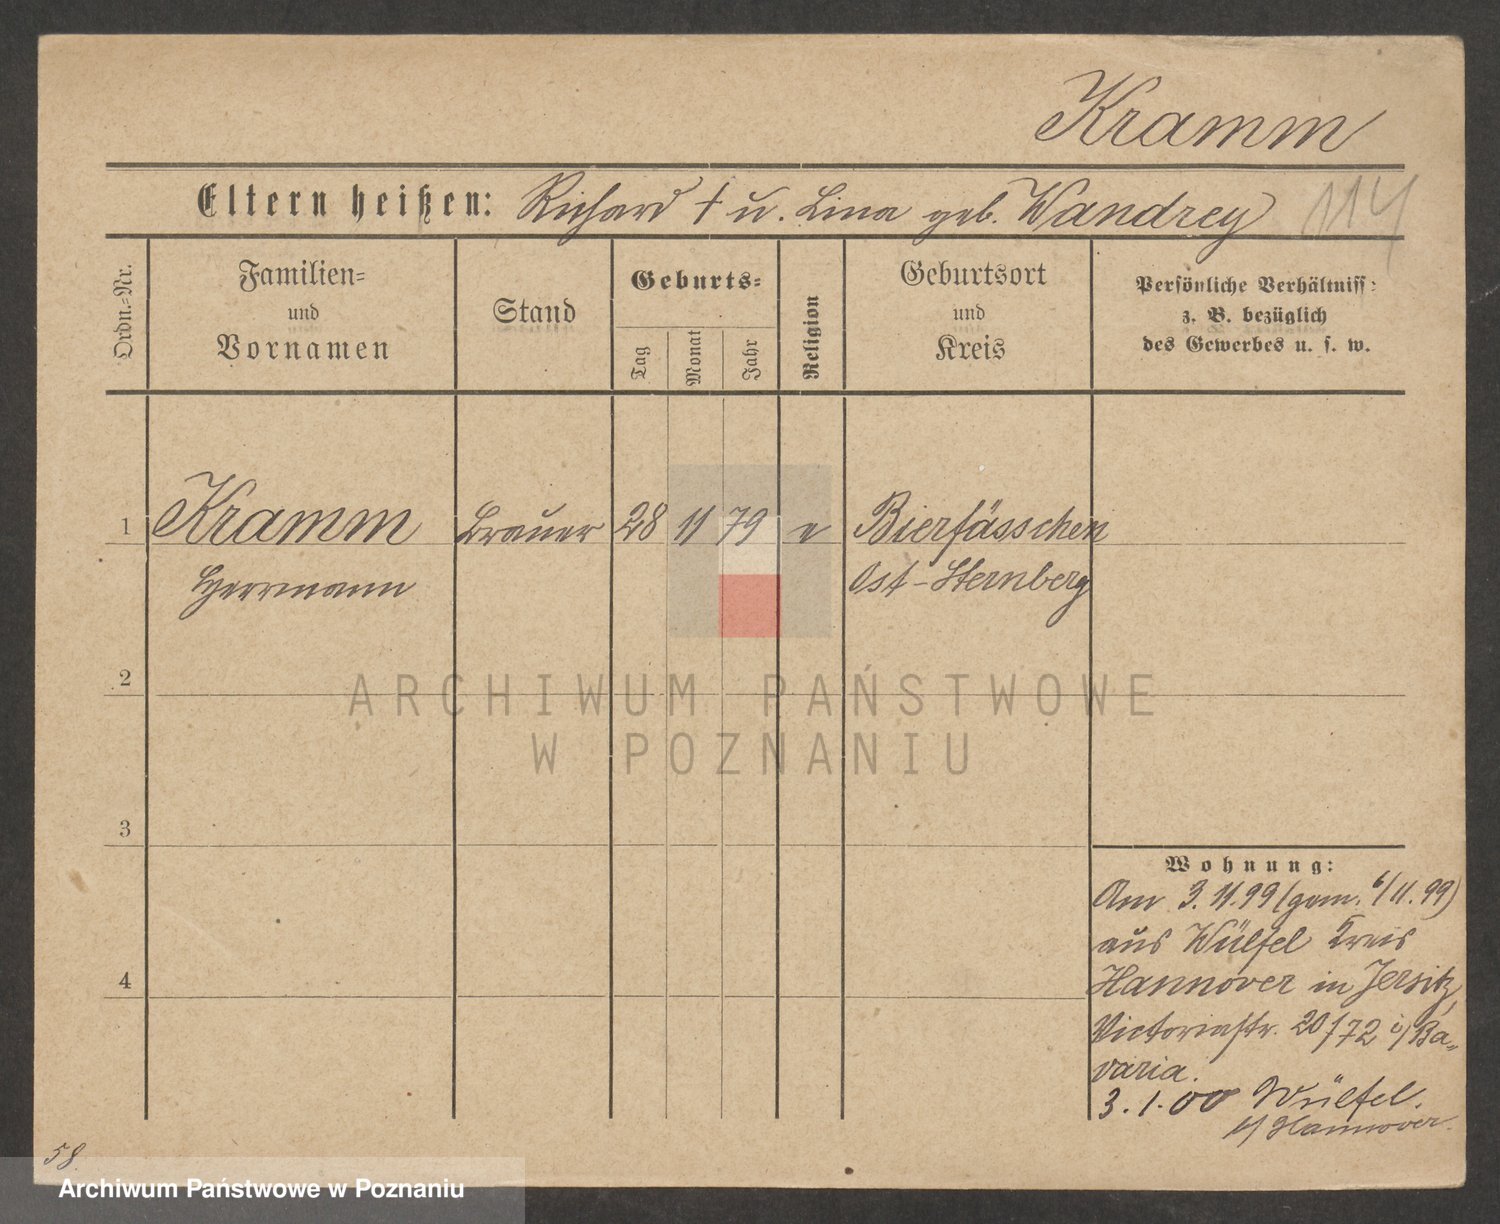 Kramm
Eltern heißen: Richard † u. Lina geb. Wandrey 114
Ordn.-Nr.
Familien-
und
Vornamen
Stand
Geburts-
Tag
Monat
Jahr
Religion
Geburtsort
und
Kreis
Persönliche Verhältniss:
z. B. bezüglich
des Gewerbes u. s. w.
1 Kramm Brauer 28 11 79 e Bierfässchen
Herrmann Ost-Sternberg
2
ARCHIWUM PAŃSTWOWE
W POZNANIU
3
Wohnung:
Am 3.11.99 (gem. 6/11.99)
aus Wülfel Kreis
4
Hannover in Jersitz,
Victoriastr. 20/72 i/Ba-
varia.
3.1.00 Wülfel.
b/Hannover.
58.
Archiwum Państwowe w Poznaniu